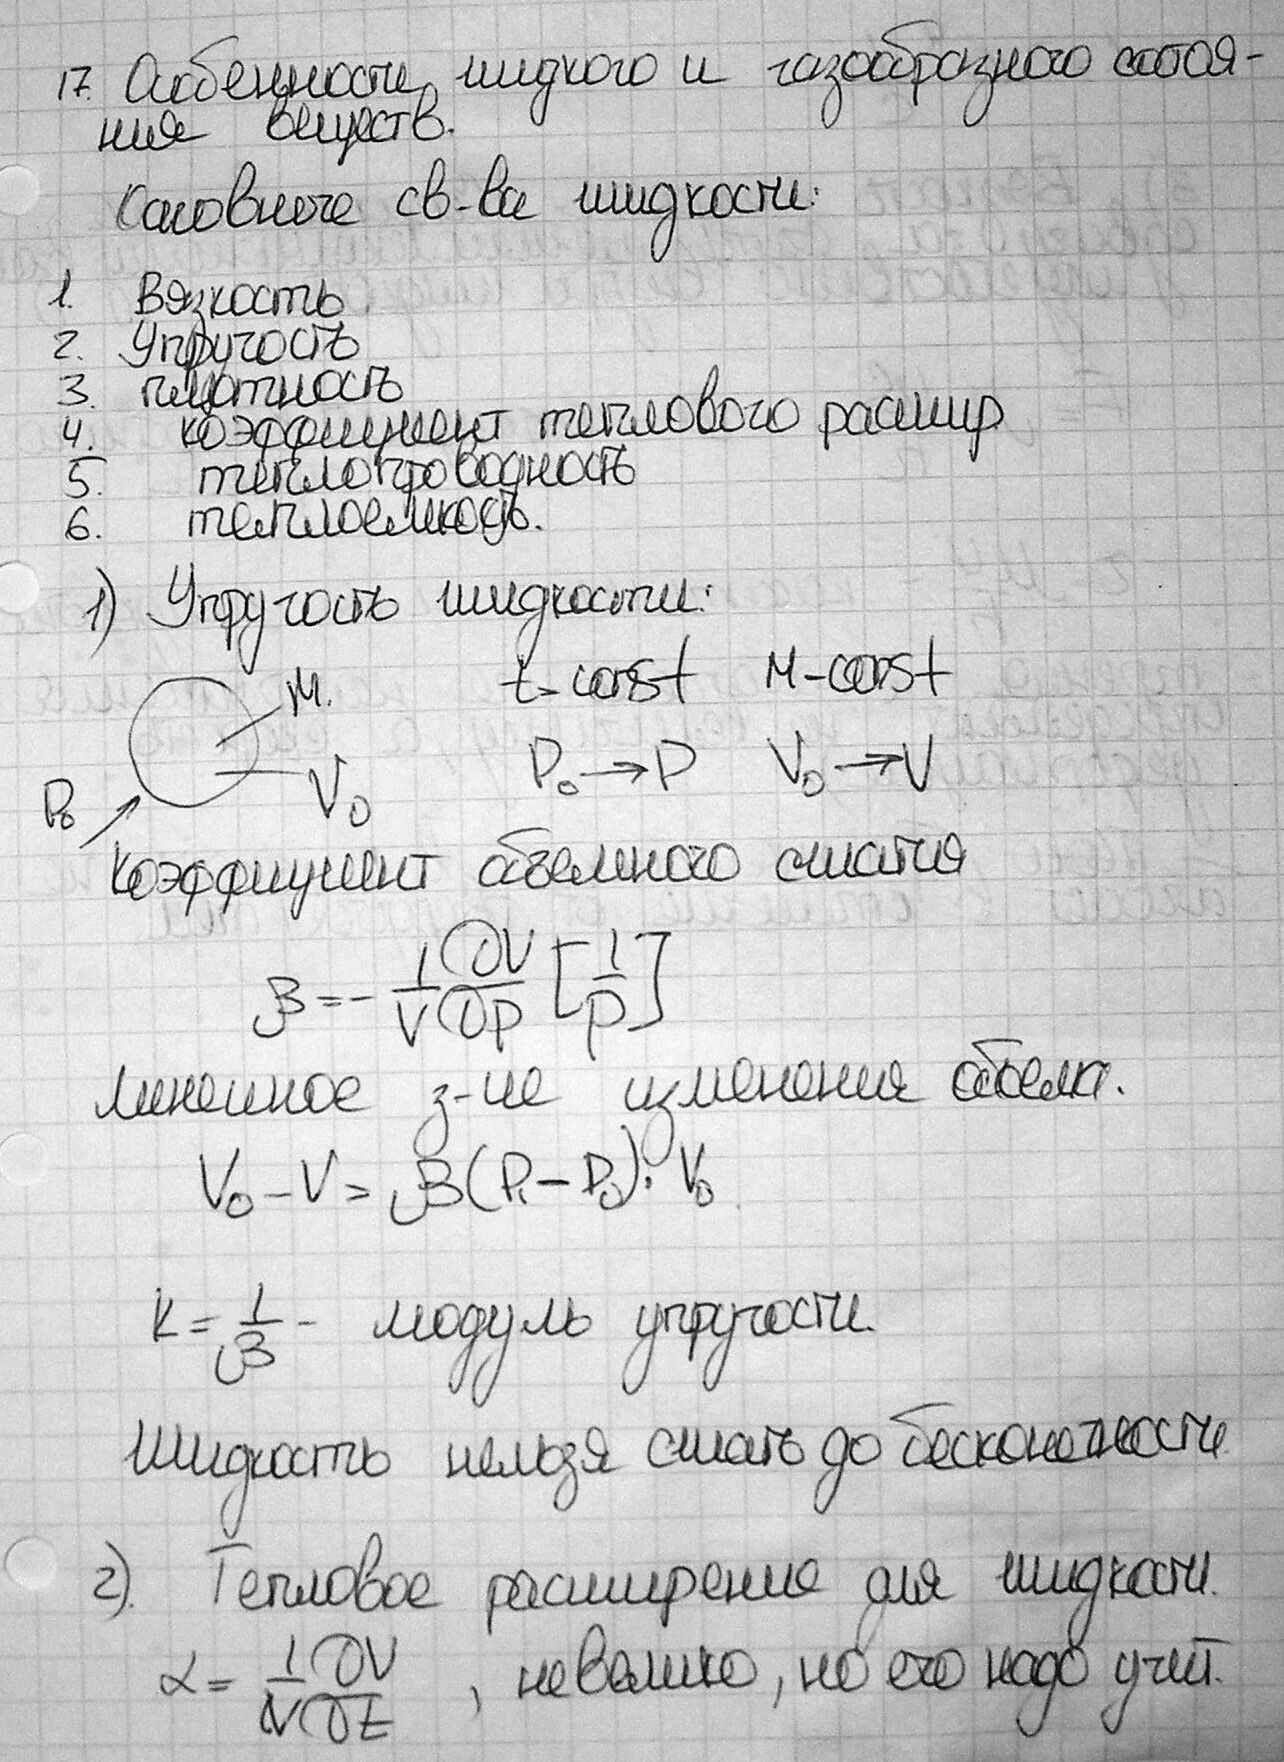 17. Особенности жидкого и газообразного состоя-
ния веществ.
Основные св-ва жидкости:
1. Вязкость
2. Упругость
3. плотность
4. коэффициент теплового расшир
5. теплопроводность
6. теплоемкость.
1) Упругость жидкости:
M. t-const M-const
P₀→P V₀→V
P₀ V₀
Коэффициент объемного сжатия
β=-1/V ∂V/∂P [1/P]
Линейное з-ие изменения объема.
V₀-V=β(P₁-P₀)·V₀
K=1/β - модуль упругости.
Жидкость нельзя сжать до бесконечности
2). Тепловое расширение для жидкости.
α=1/V ∂V/∂t, невелико, но его надо учит.